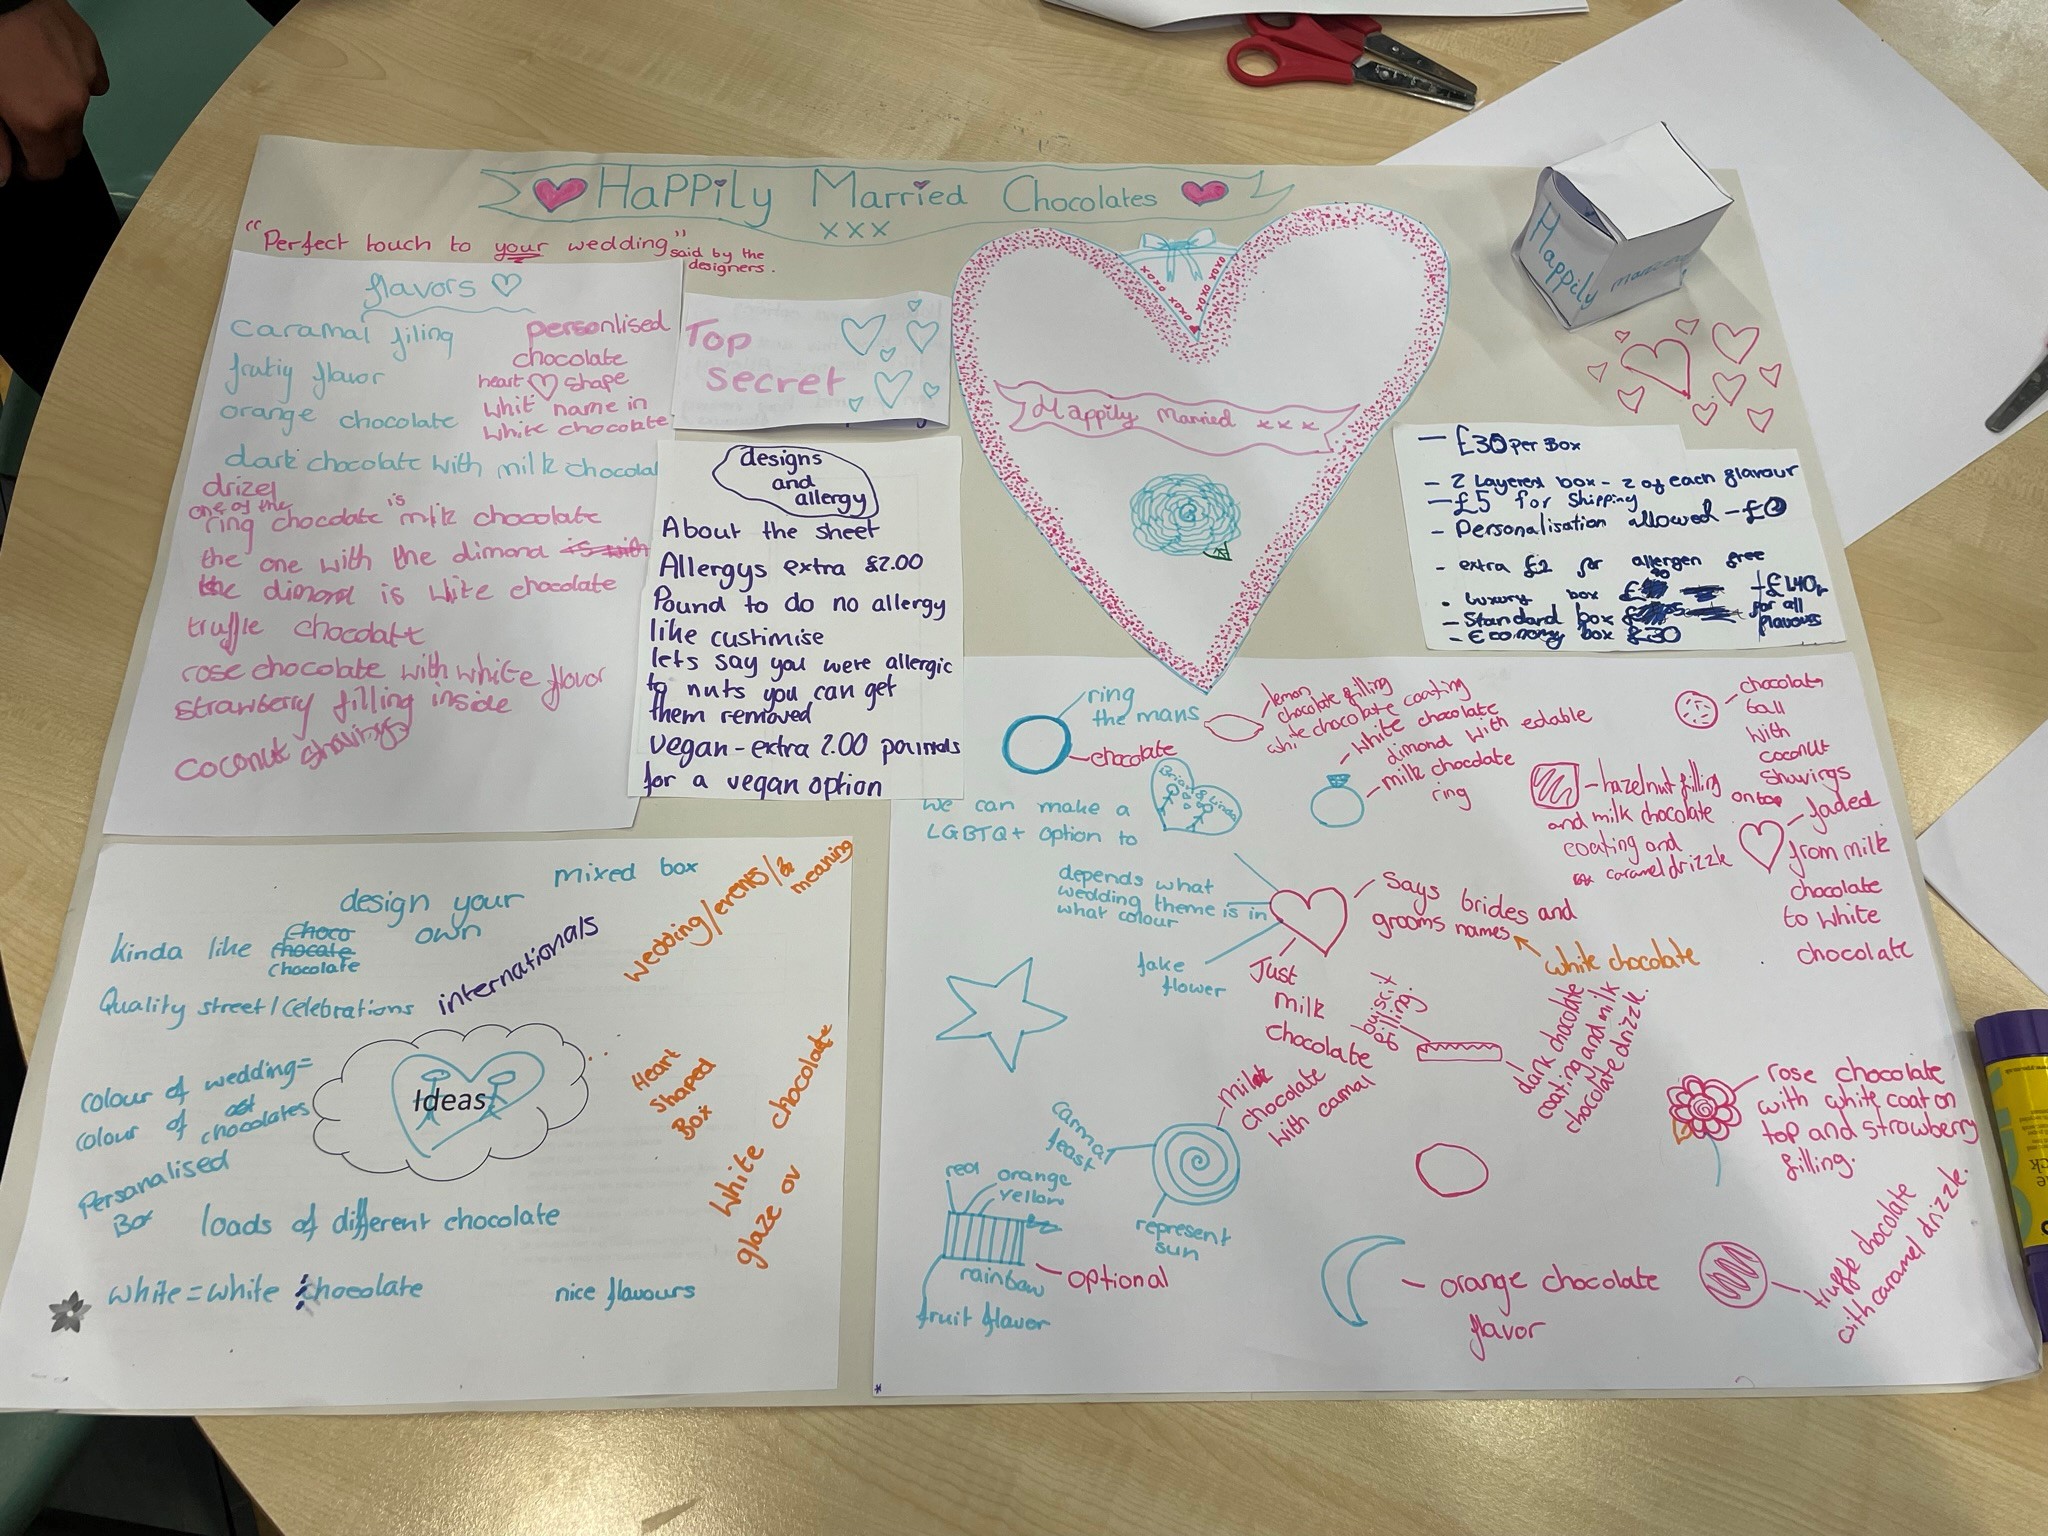 HaPPily Married Chocolates
xxx
"Perfect touch to your wedding" said by the
designers.
flavors
caramal filing
frutiy flavor
orange chocolate
dark chocolate with milk chocolat
drizel
one of the
ring chocolate is milk chocolate
the one with the dimond is with
the dimond is white chocolate
truffle chocolate
rose chocolate with white flavor
strawberry filling inside
coconut shavings
personlised
chocolate
heart shape
whit name in
white chocolate
Top
secret
designs
and
allergy
About the sheet
Allergys extra £2.00
Pound to do no allergy
like custimise
lets say you were allergic
to nuts you can get
them removed
vegan - extra 2.00 pounds
for a vegan option
xoxo
xoxox
Happily Married xxx
Happily
married
- £30 per Box
- 2 Layered box - 2 of each flavour
- £5 for Shipping
- Personalisation allowed - £0
- extra £2 for allergen free
• Luxury box £
- Standard box £
- Economy box £30
+£1.40p
for all
flavours
mixed box
design your
own
kinda like choco
chocate
chocolate
Quality street / Celebrations
internationals
wedding/events/&
meaning
colour of wedding =
colour of
chocolates
Ideas
Heart
Shaped
Box
Personalised
Box
White chocolate
glaze ov
loads of different chocolate
white = white chocolate
nice flavours
ring
the mans
chocolate
lemon
chocolate filling
white chocolate coating
white chocolate
dimond with edable
milk chocolate
ring
chocolate
ball
with
coconut
shavings
on top
hazelnut filling
and milk chocolate
coating and
caramel drizzle
faded
from milk
chocolate
to white
chocolate
Brian & Linda
we can make a
LGBTQ+ option to
depends what
wedding theme is in
what colour
fake
flower
Says brides and
grooms names
white chocolate
Just
milk
chocolate
buiscit
filling.
dark chocolate
coating and milk
chocolate drizzle.
rose chocolate
with white coat on
top and strawberry
filling.
milk
chocolate
with carmal
carmal
feast
represent
sun
red
orange
yellow
rainbow
optional
fruit flavor
orange chocolate
flavor
truffle chocolate
with caramel drizzle.